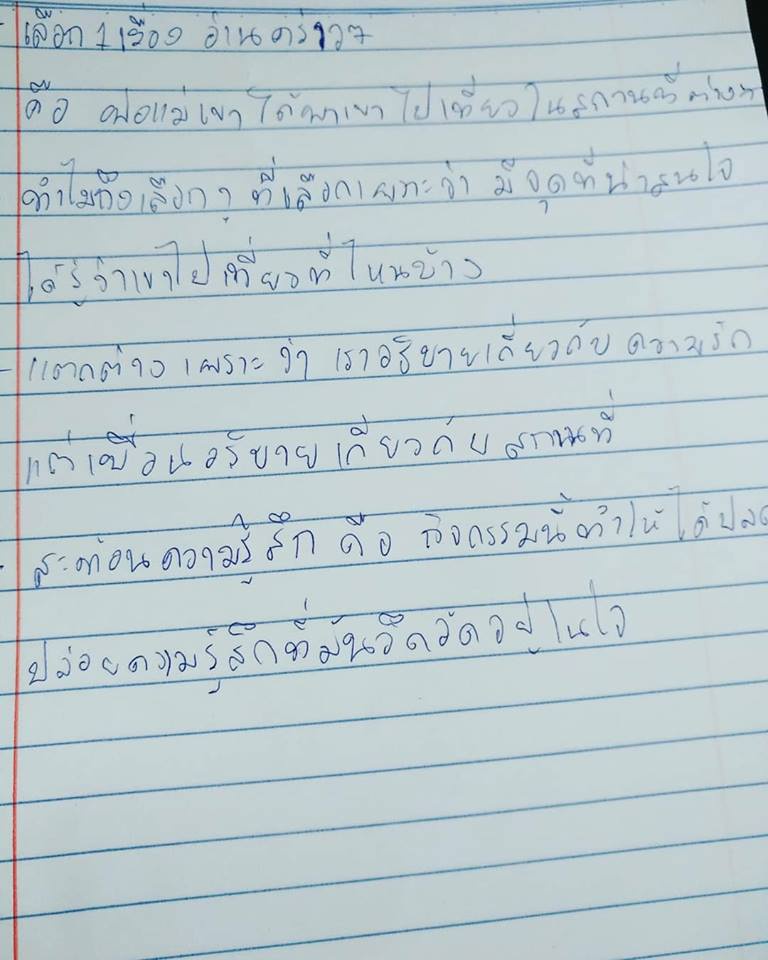 - เลือก 1 เรื่อง อ่านคร่าวๆ
คือ พ่อแม่เขาได้พาเขาไปเที่ยวในสถานที่ต่างๆ
- ทำไมถึงเลือก ๆ ที่เลือกเพราะว่า มีจุดที่น่าสนใจ
ได้รู้ว่าเขาไปเที่ยวที่ไหนบ้าง
- แตกต่าง เพราะ ว่า เราอธิบายเกี่ยวกับ ความรัก
แต่เพื่อนอธิบายเกี่ยวกับ สถานที่
- สะท้อนความรู้สึก คือ กิจกรรมนี้ทำให้ได้ปลด
ปล่อยความรู้สึกที่มันอึดอัดอยู่ในใจ